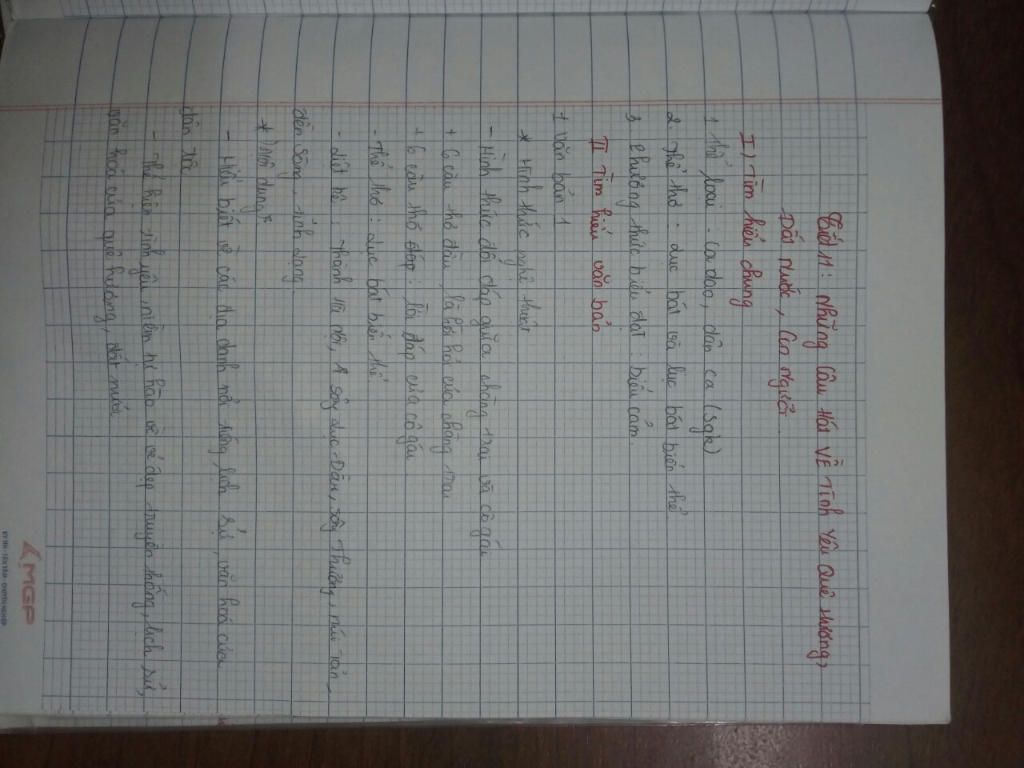 Tiết 11: Những Câu Hát Về Tình Yêu Quê Hương,
Đất Nước, Con Người.
I) Tìm hiểu chung
1 Thể loại: Ca dao, dân ca (sgk)
2. Thể thơ: lục bát và lục bát biến thể
3. Phương thức biểu đạt: biểu cảm.
II Tìm hiểu văn bản
1 Văn bản 1
* Hình thức nghệ thuật
- Hình thức đối đáp giữa chàng trai và cô gái
+ 6 câu thơ đầu là lời hỏi của chàng trai
+ 6 câu thơ đáp: lời đáp của cô gái
- Thể thơ: lục bát biến thể
- Liệt kê: thành Hà Nội, sông Lục-Đầu, sông Thương, núi Tản,
đền Sòng, tỉnh Lạng
* Nội dung*
- Hiểu biết về các địa danh nổi tiếng, lịch sử, văn hoá của
dân tộc
- Thể hiện tình yêu niềm tự hào về vẻ đẹp truyền thống, lịch sử,
văn hoá của quê hương, đất nước
MGP